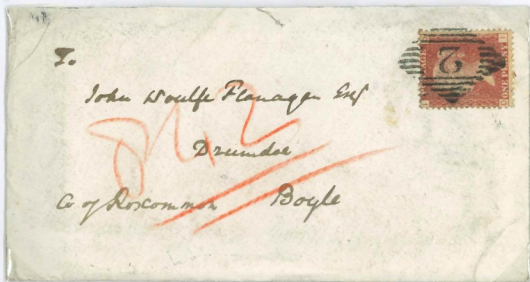 To
John Woulfe Flanagan Esq
Drumdoe
Co of Roscommon Boyle
2